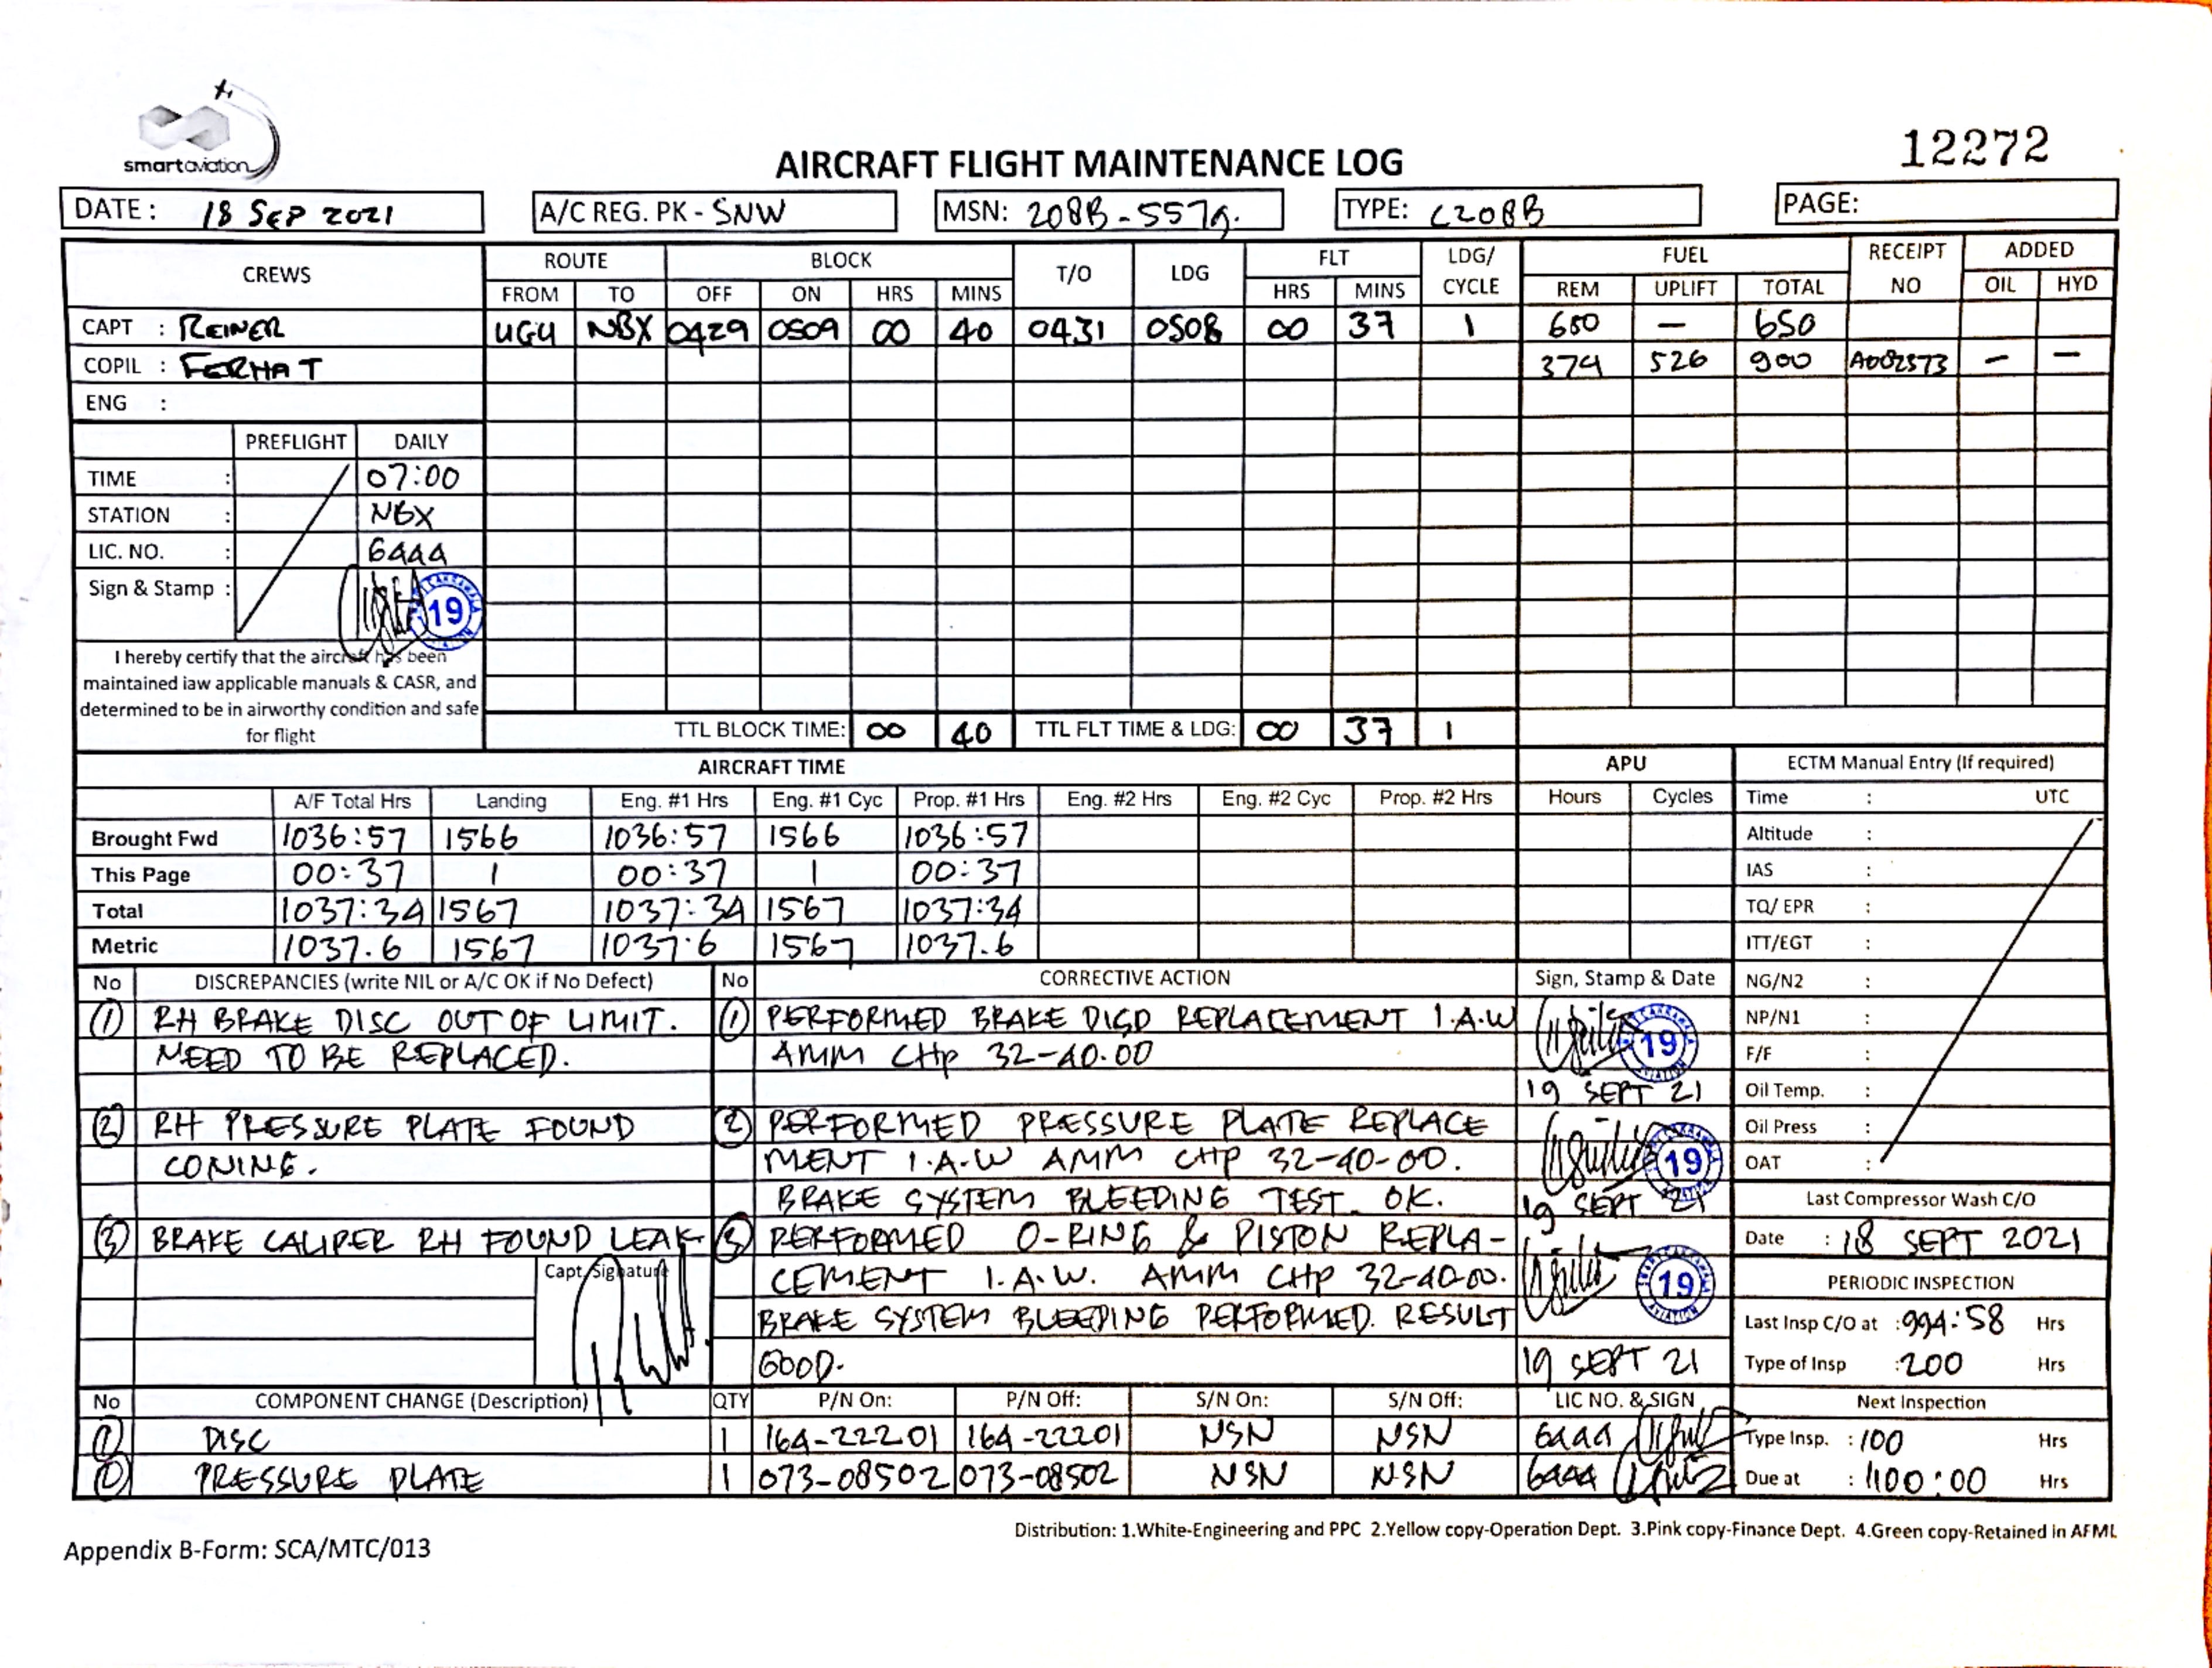 smartaviation
12272
AIRCRAFT FLIGHT MAINTENANCE LOG
DATE: 18 SEP 2021 A/C REG. PK - SNW MSN: 208B-5579. TYPE: C208B PAGE:
CREWS ROUTE BLOCK T/O LDG FLT LDG/ CYCLE FUEL RECEIPT NO ADDED
FROM TO OFF ON HRS MINS HRS MINS REM UPLIFT TOTAL OIL HYD
CAPT : REINER UGU NBX 0429 0509 00 40 0431 0508 00 37 1 650 — 650
COPIL : FERHAT 374 526 900 A082573 — —
ENG :
PREFLIGHT DAILY
TIME : 07:00
STATION : NBX
LIC. NO. : 6444
Sign & Stamp : 19
I hereby certify that the aircraft has been
maintained iaw applicable manuals & CASR, and
determined to be in airworthy condition and safe
for flight
TTL BLOCK TIME: 00 40 TTL FLT TIME & LDG: 00 37 1
AIRCRAFT TIME APU ECTM Manual Entry (If required)
A/F Total Hrs Landing Eng. #1 Hrs Eng. #1 Cyc Prop. #1 Hrs Eng. #2 Hrs Eng. #2 Cyc Prop. #2 Hrs Hours Cycles Time : UTC
Brought Fwd 1036:57 1566 1036:57 1566 1036:57 Altitude :
This Page 00:37 1 00:37 1 00:37 IAS :
Total 1037:34 1567 1037:34 1567 1037:34 TQ/ EPR :
Metric 1037.6 1567 1037.6 1567 1037.6 ITT/EGT :
No DISCREPANCIES (write NIL or A/C OK if No Defect) No CORRECTIVE ACTION Sign, Stamp & Date NG/N2 :
1 RH BRAKE DISC OUT OF LIMIT. 1 PERFORMED BRAKE DISD REPLACEMENT I.A.W 19 NP/N1 :
NEED TO BE REPLACED. AMM CHP 32-40.00 F/F :
19 SEPT 21 Oil Temp. :
2 RH PRESSURE PLATE FOUND 2 PERFORMED PRESSURE PLATE REPLACE Oil Press :
CONING. MENT I.A.W AMM CHP 32-40-00. 19 OAT :
BRAKE SYSTEM BLEEDING TEST. OK. 19 SEPT 21 Last Compressor Wash C/O
3 BRAKE CALIPER RH FOUND LEAK 3 PERFORMED O-RING & PISTON REPLA- Date : 18 SEPT 2021
Capt. Signature CEMENT I.A.W. AMM CHP 32-40-00. 19 PERIODIC INSPECTION
BRAKE SYSTEM BLEEDING PERFORMED. RESULT Last Insp C/O at : 994:58 Hrs
GOOD. 19 SEPT 21 Type of Insp : 200 Hrs
No COMPONENT CHANGE (Description) QTY P/N On: P/N Off: S/N On: S/N Off: LIC NO. & SIGN Next Inspection
1 DISC 1 164-22201 164-22201 NSN NSN 6444 Type Insp. : 100 Hrs
PRESSURE PLATE 1 073-08502 073-08502 NSN NSN 6444 Due at : 1100:00 Hrs
Distribution: 1.White-Engineering and PPC 2.Yellow copy-Operation Dept. 3.Pink copy-Finance Dept. 4.Green copy-Retained in AFML
Appendix B-Form: SCA/MTC/013